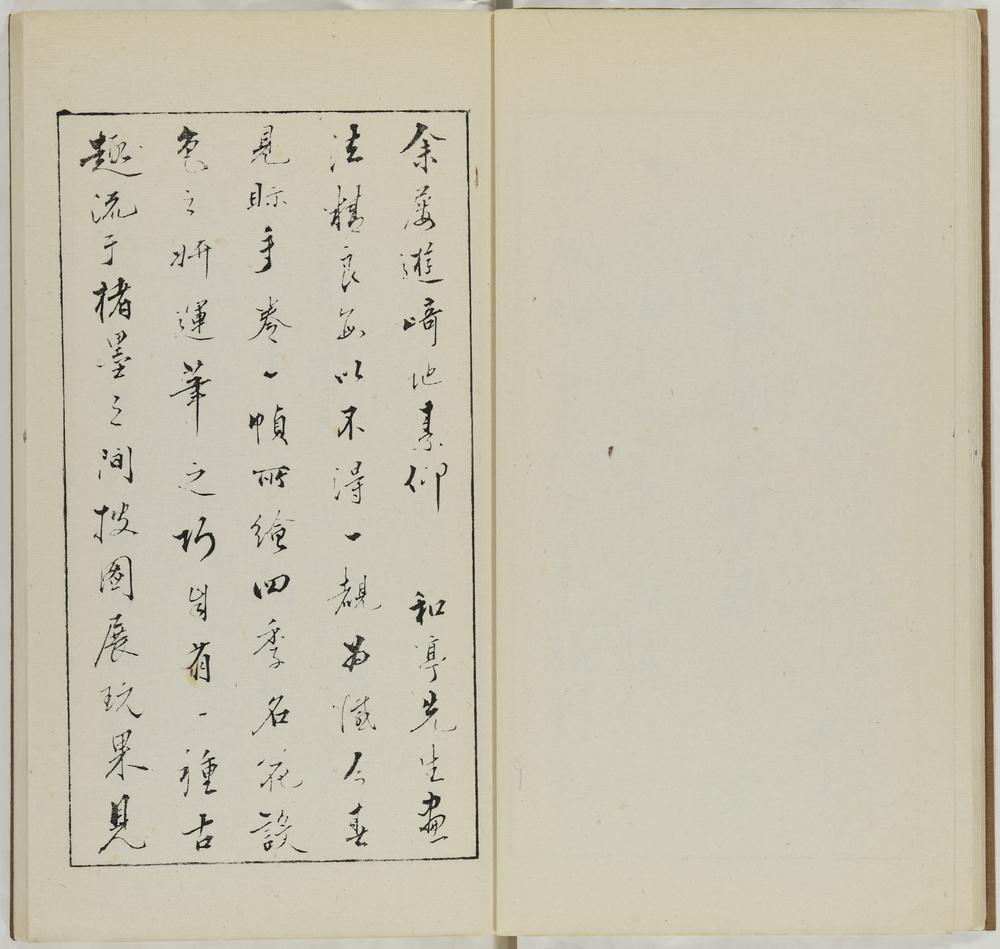 余屢遊崎地素仰 和亭先生畫
法精良每以不得一覩為憾今春
見眎手卷一幀所繪四季名花設
色之妍運筆之巧自有一種古
趣流于楮墨之間披圖展玩果見